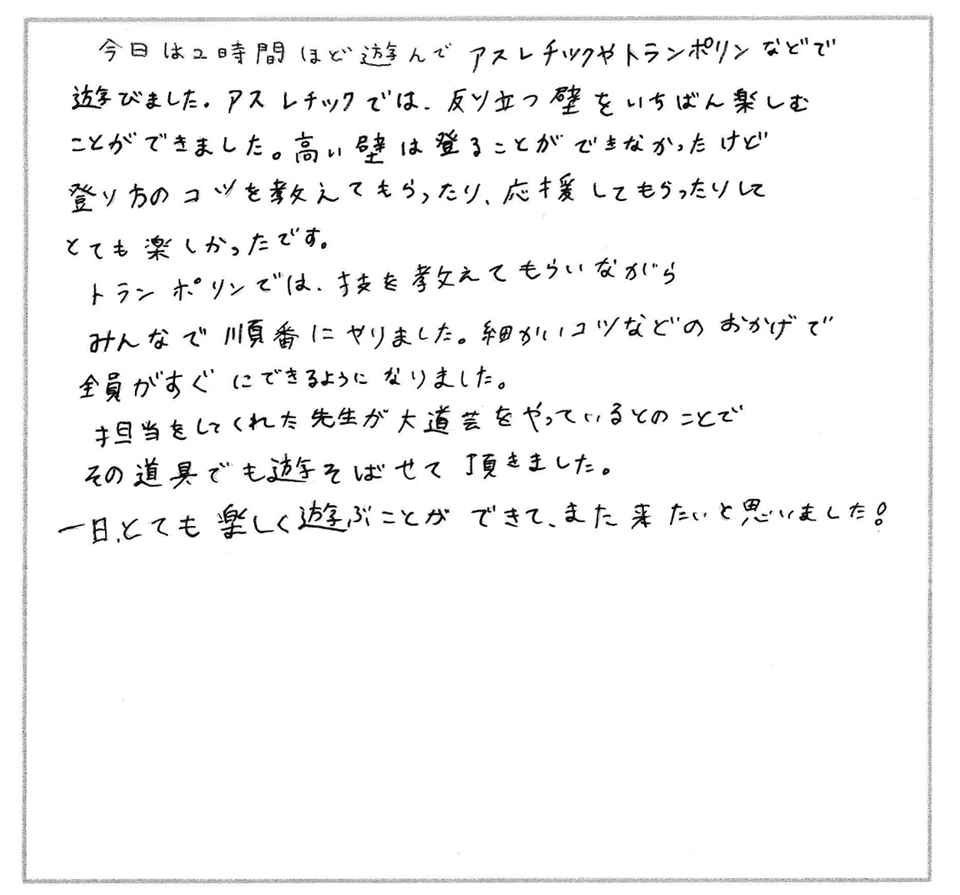 今日は2時間ほど遊んでアスレチックやトランポリンなどで
遊びました。アスレチックでは、反り立つ壁をいちばん楽しむ
ことができました。高い壁は登ることができなかったけど
登り方のコツを教えてもらったり、応援してもらったりして
とても楽しかったです。
トランポリンでは、技を教えてもらいながら
みんなで順番にやりました。細かいコツなどのおかげで
全員がすぐにできるようになりました。
担当をしてくれた先生が大道芸をやっているとのことで
その道具でも遊そばせて頂きました。
一日、とても楽しく遊ぶことができて、また来たいと思いました!